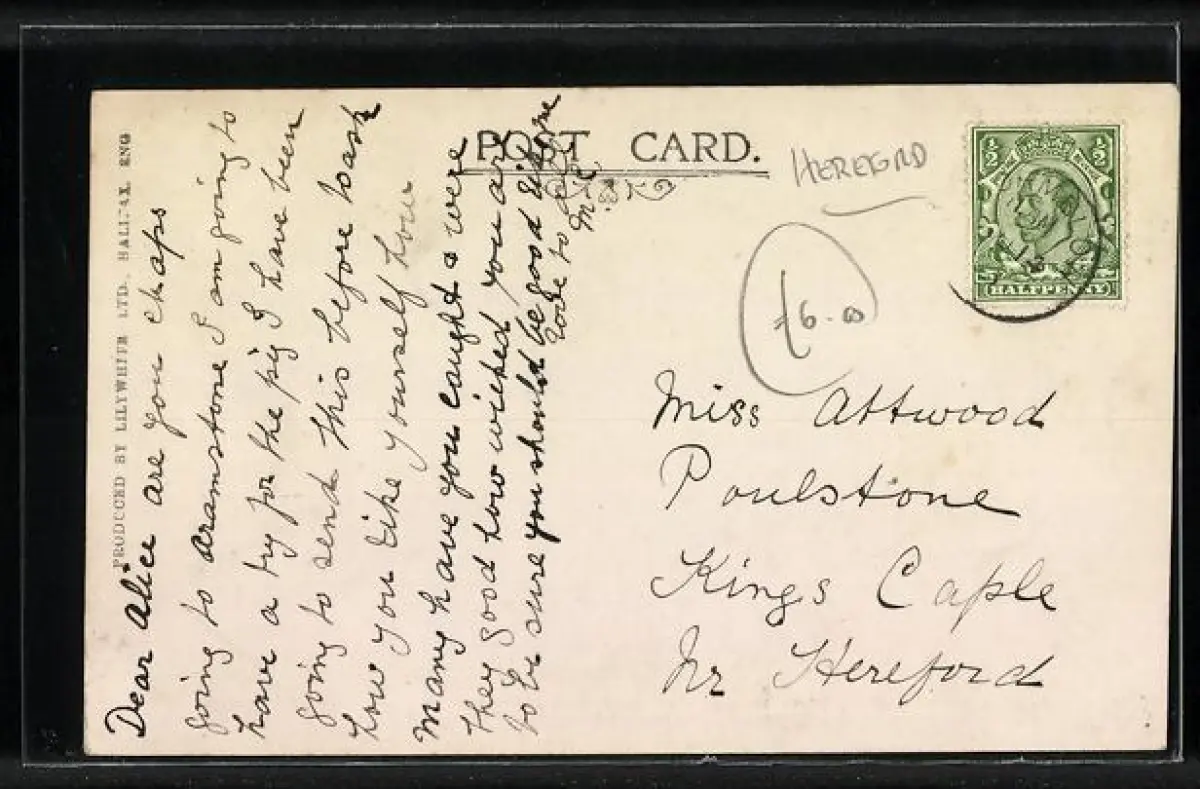 PRODUCED BY LILYWHITE LTD. HALIFAX ENG
POST CARD.
HEREFORD
½ ½
HALFPENNY
£6.00
Dear Alice are you chaps
going to Aramstone I am going to
have a try for the pig I have been
going to send this before to ask
how you like yourself how
many have you caught & were
they good how wicked you are
to be sure you should be good like me
love to
Miss Attwood
Poulstone
Kings Caple
Nr Hereford